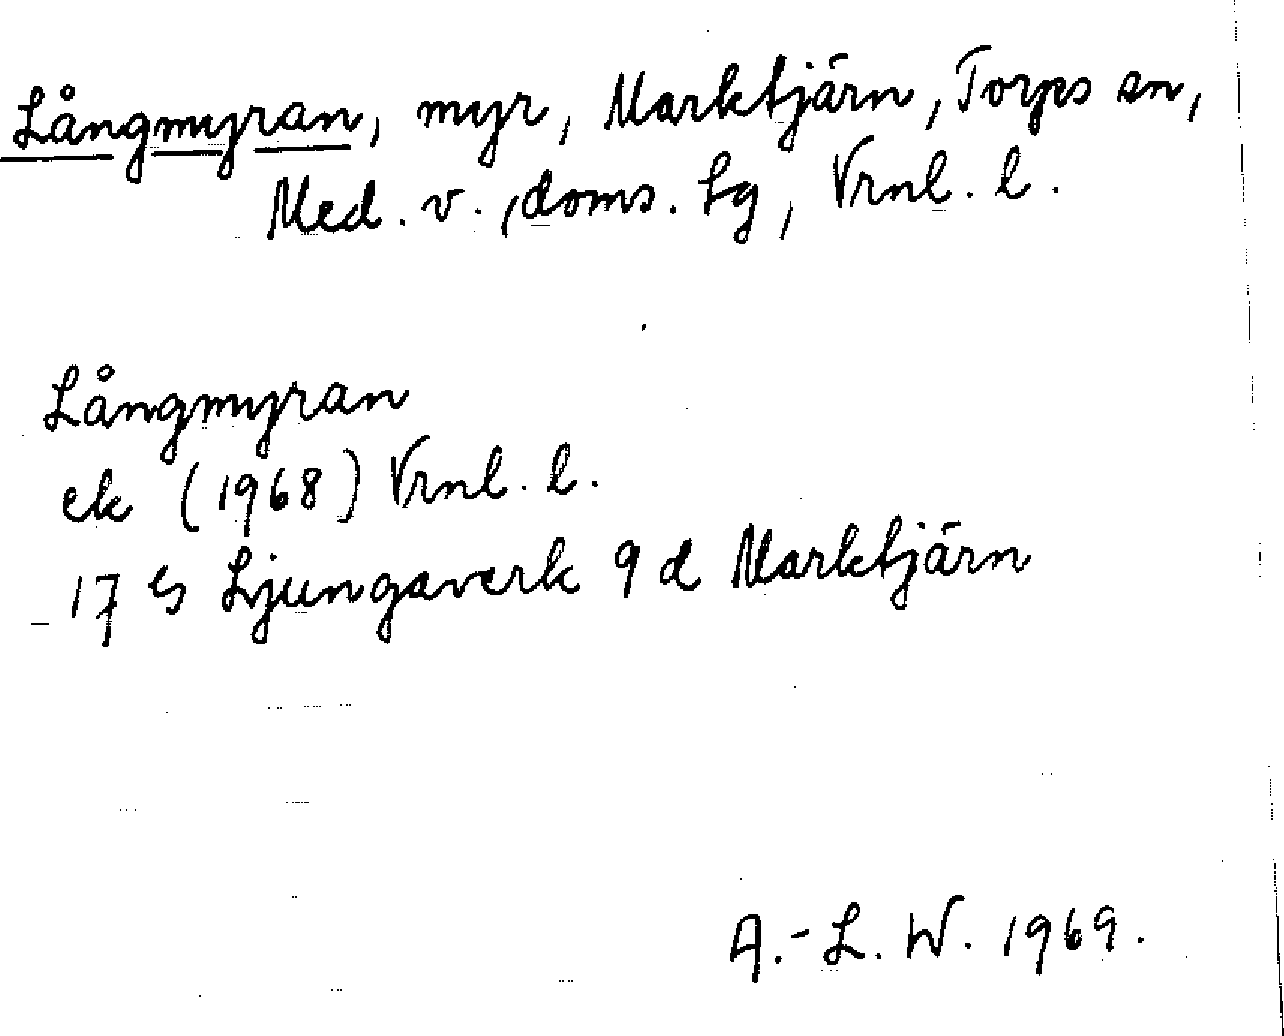 Långmyran, myr, Marktjärn, Torps sn,
Med. v., doms. tg, Vrnl. l.
Långmyran
ek (1968) Vrnl. l.
17 G Ljungaverk 9 d Marktjärn
A.-L. W. 1969.